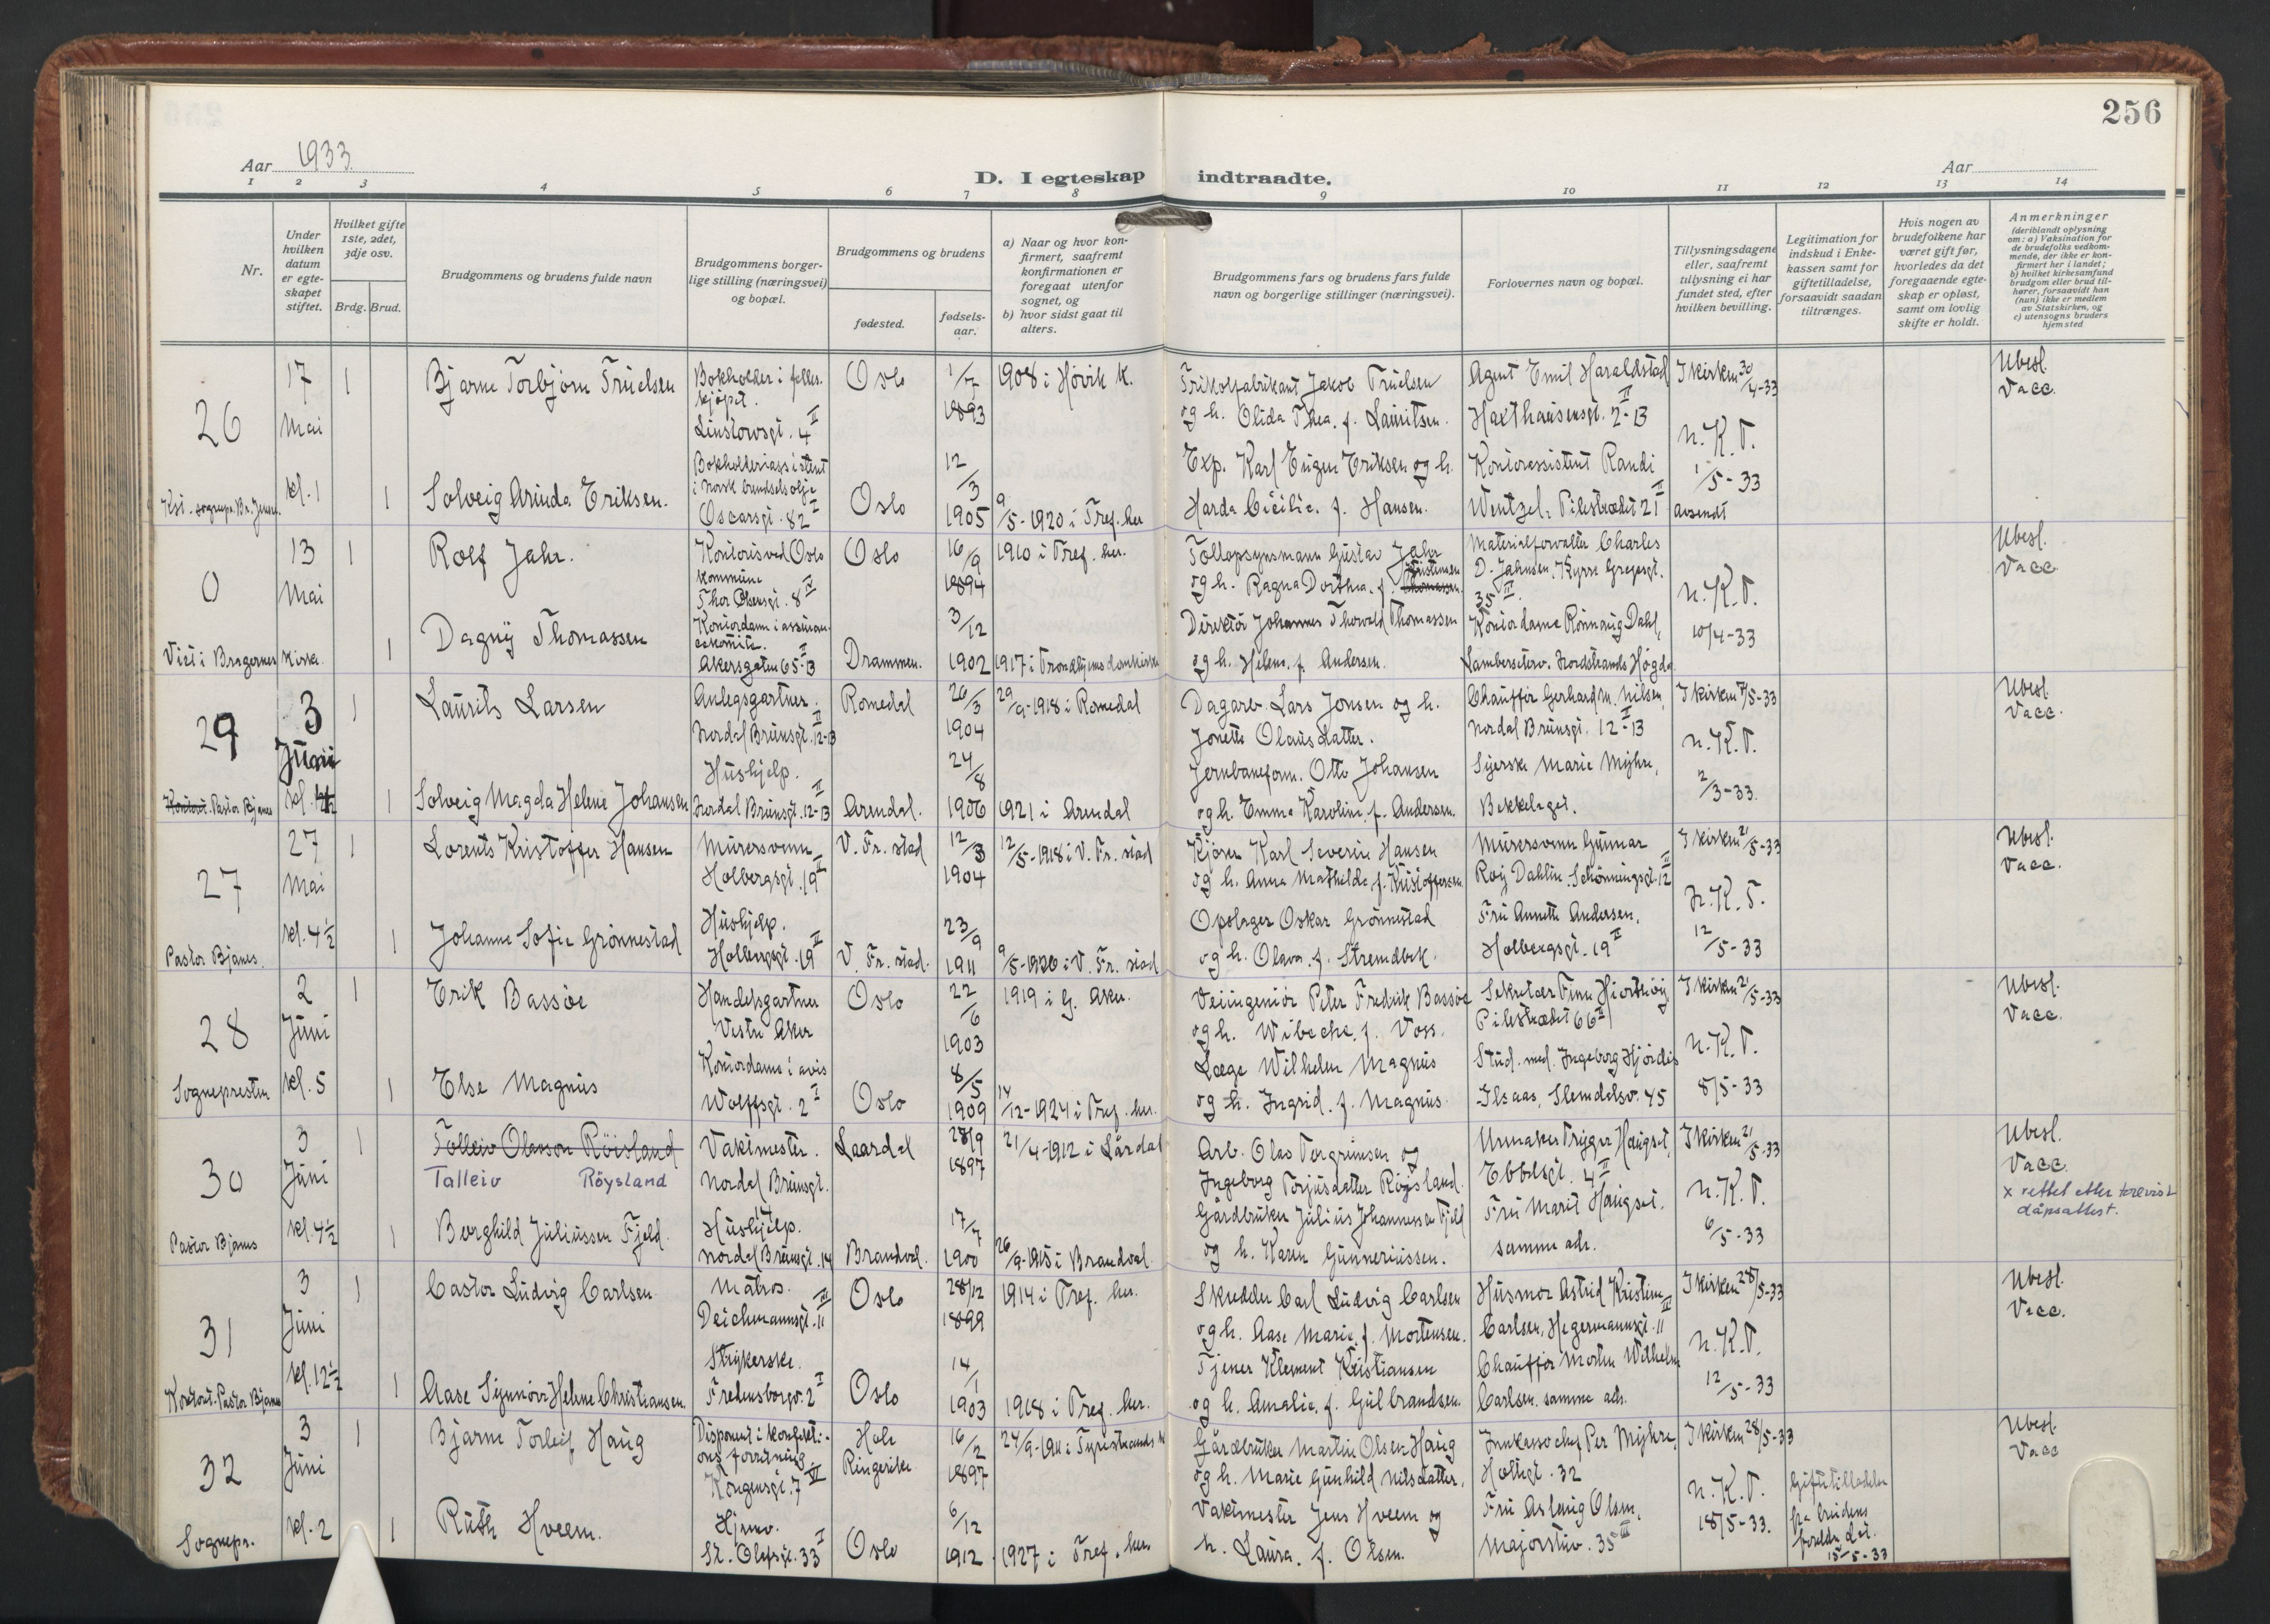 256
Aar 1933.
D. I egteskap indtraadte.
Aar
1 2 3 4 5 6 7 8 9 10 11 12 13 14
Nr.
Under hvilken datum er egteskapet stiftet.
Hvilket gifte 1ste, 2det, 3dje osv.
Brdg. Brud.
Brudgommens og brudens fulde navn
Brudgommens borgerlige stilling (næringsvei) og bopæl.
Brudgommens og brudens
fødested.
fødselsaar.
a) Naar og hvor konfirmert, saafremt konfirmationen er foregaat utenfor sognet, og
b) hvor sidst gaat til alters.
Brudgommens fars og brudens fars fulde navn og borgerlige stillinger (næringsvei).
Forlovernes navn og bopæl.
Tillysningsdagene eller, saafremt tillysning ei har fundet sted, efter hvilken bevilling.
Legitimation for indskud i Enkekassen samt for giftetilladelse, forsaavidt saadan tiltrænges.
Hvis nogen av brudefolkene har været gift før, hvorledes da det foregaaende egteskap er opløst, samt om lovlig skifte er holdt.
Anmerkninger
(deriblandt oplysning om: a) Vaksination for de brudefolks vedkommende, der ikke er konfirmert her i landet; b) hvilket kirkesamfund brudgom eller brud tilhører, forsaavidt han (hun) ikke er medlem av Statskirken, og c) utensogns bruders hjemsted
26
17 Mai kl. 1
1
Bjarne Torbjørn Truelsen
Bokholder i felleskjøpet.
Linstowsgt. 4 II
Oslo
1/7 1893
1908 i Høvik k.
Trikotfabrikant Jakob Truelsen
og h. Olida Thea. f. Lauritsen.
Agent Emil Haraldstad
Haxthausensgt. 2 II - 13
I kirken 30/4-33
n.K.T.
1/5-33
avsendt
Ubesl.
Vacc.
1
Solveig Arinda Eriksen.
Bokholderiassistent
i Norsk brendselsolje
Oscarsgt. 82 I
Oslo
12/3 1905
9/5-1920 i Tref. her
Exp. Karl Eugen Eriksen og h.
Harda Cicilie. f. Hansen.
Kontorassistent Randi
Wentzel, Pilestrædet 21 II
0
13 Mai
1
Rolf Jahr.
Kontorist ved Oslo
kommune
Thor Olsensgt. 8 IV
Oslo
16/9 1894
1910 i Tref. her.
Tollopsynsmann Gustav Jahr
og h. Ragna Dorthea. f. Kristensen
Materialforvalter Charles
D. Jahnsen, Kyrre Grepsgt.
35 III.
n.K.T.
10/4-33
Ubesl.
Vacc.
Viet i Bragernes kirke
1
Dagny Thomassen
Akersgaten 65 II - B
Drammen.
3/12 1902
1917 i Trondhjems domkirke
Direktør Johannes Thorvald Thomassen
og h. Helene. f. Andersen.
Kontordame Rønnaug Dahl,
Lambertseterv. Nordstrands Høgda
29
3 Juni
Pastor Bjanes
1
Laurits Larsen
Anlegsgartner.
Nordal Brunsgt. 12 II-13
Romedal
26/3 1904
29/9-1918 i Romedal
Dagarb. Lars Jonsen og h.
Jonette Olausdatter.
Chauffør Gerhard M. Nilsen,
Nordal Brunsgt. 12 II-13
I kirken 7/5-33
n.K.T.
2/3-33.
Ubesl.
Vacc.
1
Solveig Magda Helene Johansen
Hushjelp.
Nordal Brunsgt. 12-13 II
Arendal.
24/8 1906
1921 i Arendal
Jernbaneform. Otto Johansen
og h. Emma Karoline. f. Andersen.
Syerske Marie Myhre,
Bekkelaget.
27
27 Mai kl. 4½
Pastor Bjanes.
1
Lorents Kristoffer Hansen
Murersvenn
Holbergsgt. 19 II
V. Fr. stad
12/3 1904
12/5-1918 i V. Fr. stad
Kjører Karl Severin Hansen
og h. Anna Mathilde, f. Kristoffersen.
Murersvenn Gunnar
Roy Dahlin, Schønningsgt. 12 II
I kirken 21/5-33
n.K.T.
12/5-33
Ubesl.
Vacc.
1
Johanne Sofie Grønnestad
Hushjelp.
Holbergsgt. 19 II
V. Fr. stad.
23/9 1911
9/5-1926 i V. Fr. stad
Opslager Oskar Grønnestad
og h. Olava. f. Strømdbek.
Fru Annette Andersen,
Holbergsgt. 19 II
28
2 Juni kl. 5
Sognepresten
1
Erik Bassøe
Handelsgartner
Vestre Aker
Oslo
22/6 1903
1919 i G. Aker.
Veiingeniør Peter Fredrik Bassøe
og h. Wibecke. f. Voss.
Sekretær Finn Hiorthøy,
Pilestrædet 66 II
I kirken 21/5-33
n.K.T.
8/5-33
Ubesl.
Vacc.
1
Else Magnus
Kontordame i avis
Wolffsgt. 2 I
Oslo
8/5 1909
14/12-1924 i Tref. her.
Læge Wilhelm Magnus
og h. Ingrid. f. Magnus.
Stud. med. Ingeborg Hjørdis
Ilsaas, Slemdalsv. 45
30
3 Juni kl. 4½
Pastor Bjanes
1
Tolleiv Olavson Röisland
Talleiv Röysland
Vaktmester.
Nordal Brunsgt. 14
Laardal
28/9 1897
21/4-1912 i Lårdal
Arb. Olav Torgrimsen og
Ingeborg Torjusdatter Røysland.
Urmaker Trygve Haugset,
Ebbelsgt. 4 II
I kirken 21/5-33
n.K.T.
6/5-33
Ubesl.
Vacc.
x rettet etter forevist
dåpsattest.
1
Borghild Juliussen Fjeld.
Hushjelp.
Nordal Brunsgt. 14
Brandval.
17/7 1900
26/9-1915 i Brandval.
Gårdbruker Julius Johannessen Fjeld
og h. Karen Gunneriussen.
Fru Marit Haugset.
samme adr.
31
3 Juni kl. 12½
Kontoret. Pastor Bjanes
1
Castor Ludvig Carlsen
Matros.
Deichmannsgt. 11 III
Oslo
28/12 1899
1914 i Tref. her.
Skredder Carl Ludvig Carlsen
og h. Aase Marie, f. Mortensen.
Husmor Astrid Kristine
Carlsen, Hegermannsgt. 11 III
I kirken 28/5-33
n.K.T.
12/5-33
Ubesl.
Vacc.
1
Aase Synnøve Helene Christiansen.
Strykerske.
Fredensborgv. 2 I
Oslo
14/1 1903
1918 i Tref. her.
Tjener Klement Kristiansen
og h. Amalie. f. Gulbrandsen.
Chauffør Morten Wilhelm
Carlsen. samme adr.
32
3 Juni kl. 2
Sognepr.
1
Bjarne Torleif Haug
Disponent i konfektionsforretning,
Kongensgt. 7 VI
Hole
Ringerike
16/2 1897
24/9-1911 i Tyristrands k
Gårdbruker Martin Olsen Haug
og h. Marie Gunhild Nilsdatter.
Inkassochef Per Myhre,
Holtegt. 32
I kirken 28/5-33
n.K.T.
18/5-33.
Giftetilladelse
fra brudens
foreldre dat.
15-5-33
Ubesl.
Vacc
1
Ruth Hveem.
Hjemv.
St. Olafsgt. 33 I
Oslo
6/12 1912
1927 i Tref. her.
Vaktmester Jens Hveem og
h. Laura. f. Olsen.
Fru Aslaug Olsen,
Majorstuv. 35 III